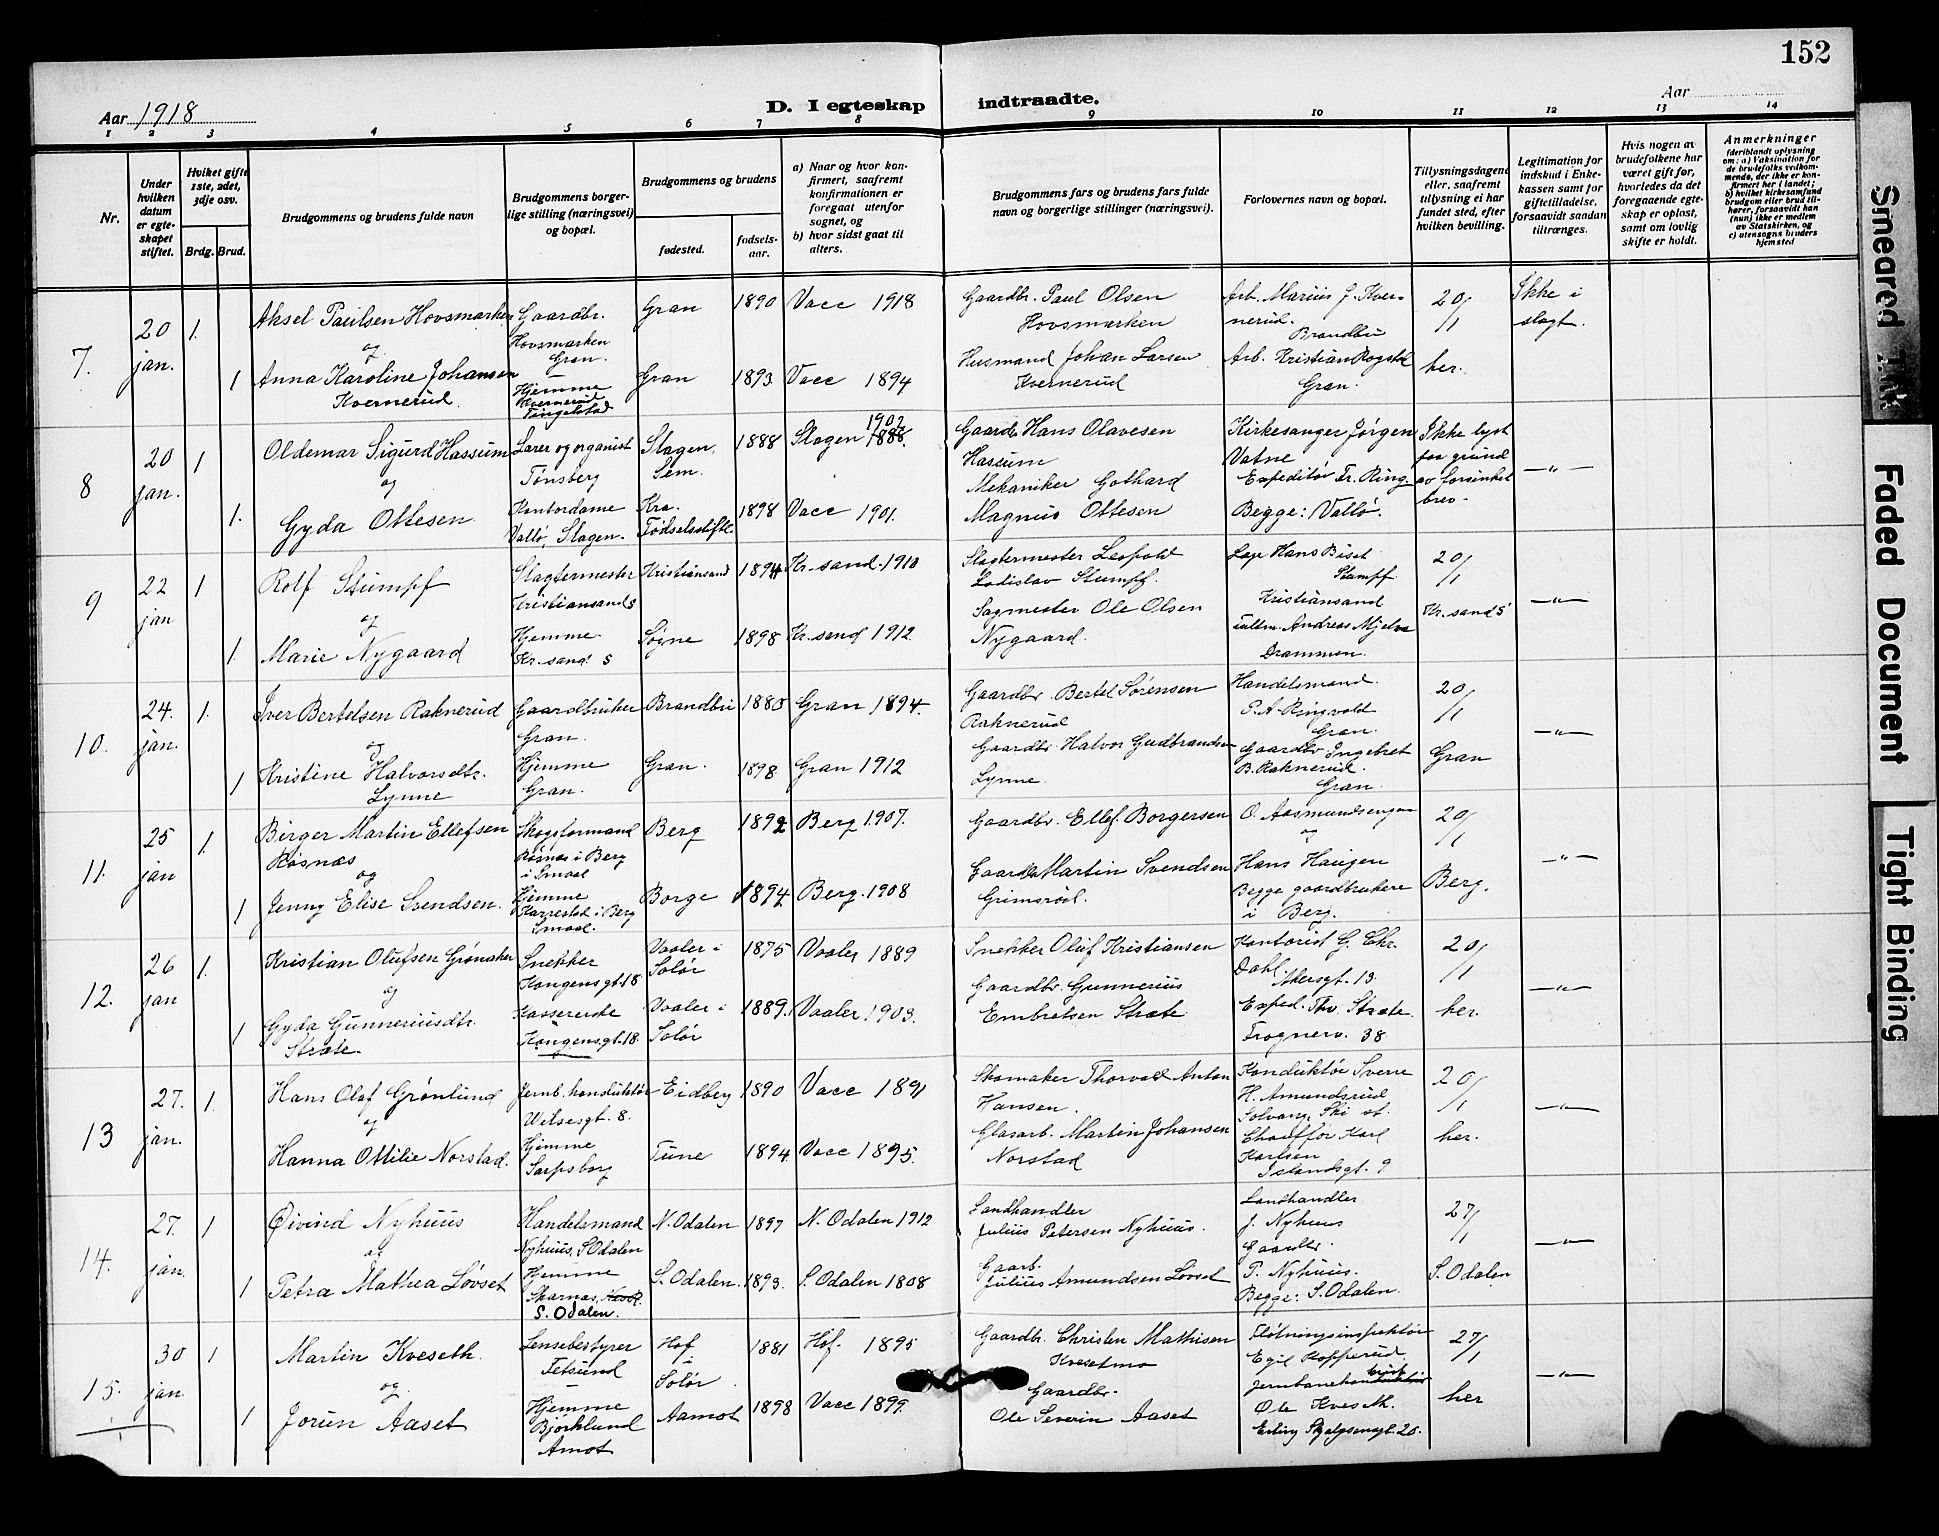 152
Aar 1918
D. I egteskap indtraadte.
Aar
1 2 3 4 5 6 7 8 9 10 11 12 13 14
Nr.
Under hvilken datum er egteskapet stiftet.
Hvilket gifte 1ste, 2det, 3dje osv.
Brdg. Brud.
Brudgommens og brudens fulde navn
Brudgommens borgerlige stilling (næringsvei) og bopæl.
Brudgommens og brudens
fødested.
fødselsaar.
a) Naar og hvor konfirmert, saafremt konfirmationen er foregaat utenfor sognet, og
b) hvor sidst gaat til alters.
Brudgommens fars og brudens fars fulde navn og borgerlige stillinger (næringsvei).
Forlovernes navn og bopæl.
Tillysningsdagene eller, saafremt tillysning ei har fundet sted, efter hvilken bevilling.
Legitimation for indskud i Enkekassen samt for giftetilladelse, forsaavidt saadan tiltrænges.
Hvis nogen av brudefolkene har været gift før, hvorledes da det foregaaende egteskap er opløst, samt om lovlig skifte er holdt.
Anmerkninger
(deriblandt oplysning om: a) Vaksination for de brudefolks vedkommende, der ikke er konfirmert her i landet; b) hvilket kirkesamfund brudgom eller brud tilhører, forsaavidt han (hun) ikke er medlem av Statskirken, og c) utensogns bruders hjemsted
7. 20 jan. 1. Aksel Paulsen Hovsmarken Gaardbr. Hovsmarken Gran. Gran 1890 Vacc 1918 Gaardbr. Paul Olsen Hovsmarken Arb. Marius J. Kvernerud. Brandbu 20/1 Ikke i slegt.
og
1 Anna Karoline Johansen Kvernerud. Hjemme Kvernerud Tingelstad Gran 1893 Vacc 1894 Husmand Johan Larsen Kvernerud Arb. Kristian Rogstad Gran. her.
8 20 jan. 1 Oldemar Sigurd Hassum Lærer og organist Tønsberg Slagen, Sem. 1888 Slagen 1902 1888. Gaardb. Hans Olavesen Hassum Kirkesanger Jørgen Vatne Ikke lyst paa grund av forsinket brev. -"-
og
1. Gyda Ottesen Kontordame Vallø, Slagen. Kra. Fødselsstifte. 1898 Vacc 1901. Mekaniker Gothard Magnus Ottesen Expeditør Fr. Ring. Begge: Vallø.
9 22 jan 1 Rolf Stumpf Slagtermester Kristiansand S Kristiansand 1894 Kr.sand. 1910 Slagtermester Leopold Ladislav Stumpf. Hans Biset Stumpf Kristiansand 20/1 -"-
og
1. Marie Nygaard Hjemme Kr.sand S Søgne 1898 Kr.sand 1912 Sagmester Ole Olsen Nygaard. Andreas Mjelva Drammen. Kr.sand S
10. 24. jan. 1. Iver Bertelsen Raknerud Gaardbruker Gran. Brandbu 1880 Gran 1894. Gaardbr. Bertel Sørensen Raknerud Handelsmand. P.A. Ringvold Gran. 20/1 -"-
og
1 Kristine Halvorsdtr. Lynne Hjemme Gran. Gran. 1898 Gran 1912 Gaardbr. Halvor Gudbrandsen Lynne. Gaardbr. Ingebret B. Raknerud. Gran. Gran
11. 25 jan 1. Birger Martin Ellefsen Røsnæs Skogsformand Røsnæs i Berg i Smaal Berg 1892 Berg 1907. Gaardbr. Ellef Borgersen O. Aasmundsengen 20/1 -"-
og og
1 Jenny Elise Svendsen. Hjemme Karrestad i Berg Smaal. Borge 1894 Berg. 1908 Gaardbr. Martin Svendsen Grimsrød. Hans Haugen Begge gaardbrukere i Berg. Berg.
12. 26 jan 1. Kristian Olufsen Grønaker Snekker Kongensgt. 18 Vaaler i Solør 1875 Vaaler 1889 Snekker Oluf Kristiansen Kontorist G. Chr. Dahl. Akersgt. 13 20/1 -"-
og
1 Gyda Gunneriusdtr. Stræte. Kassererske Kongensgt. 18. Vaaler i Solør 1889. Vaaler 1903. Gaardbr. Gunnerius Embretsen Stræte Exped. Thv. Stræte. Frognerv. 38 her.
13 27. jan. 1. Hans Olaf Grønlund Jernb. konduktør Wilsesgt. 8. Eidberg 1890 Vacc 1891 Skomaker Thorvald Anton Hansen. Konduktør Sverre H. Amundsrud Solvang, Ski st. 20/1 -"-
og
Hanna Ottilie Norstad. Hjemme Sarpsborg Tune 1894. Vacc 1895. Glasarb. Martin Johansen Norstad Chauffør Karl Karlsen Islandsgt. 9 her.
14. 27. jan. 1 Øivind Nyhuus Handelsmand Nyhuus, S.Odalen N. Odalen 1897 N. Odalen 1912 Landhandler Julius Petersen Nyhuus. Landhandler J. Nyhuus 27/1 -"-
og
1 Petra Mathea Løvset Hjemme Skarnæs, S. Odalen. S. Odalen. 1893. S. Odalen 1808 Gaarb. Julius Amundsen Løvset Gaardbr. P. Nyhuus. Begge: S. Odalen. S. Odalen
15. 30 jan. 1 Martin Kveseth. Lensebestyrer Fetsund Hof i Solør 1881 Hof. 1895 Gaardbr. Christen Mathisen Kvesetmo Fløtningsinspektør Egil Kopperud 27/1 -"-
og
1 Jorun Aaset Hjemme Bjørklund Amot Aamot 1898 Vacc 1899. Gaardbr. Ole Severin Aaset Ole Kveseth. Erling Skjalgsonsgt. 20. her
Smeared Ink
Faded Document
Tight Binding